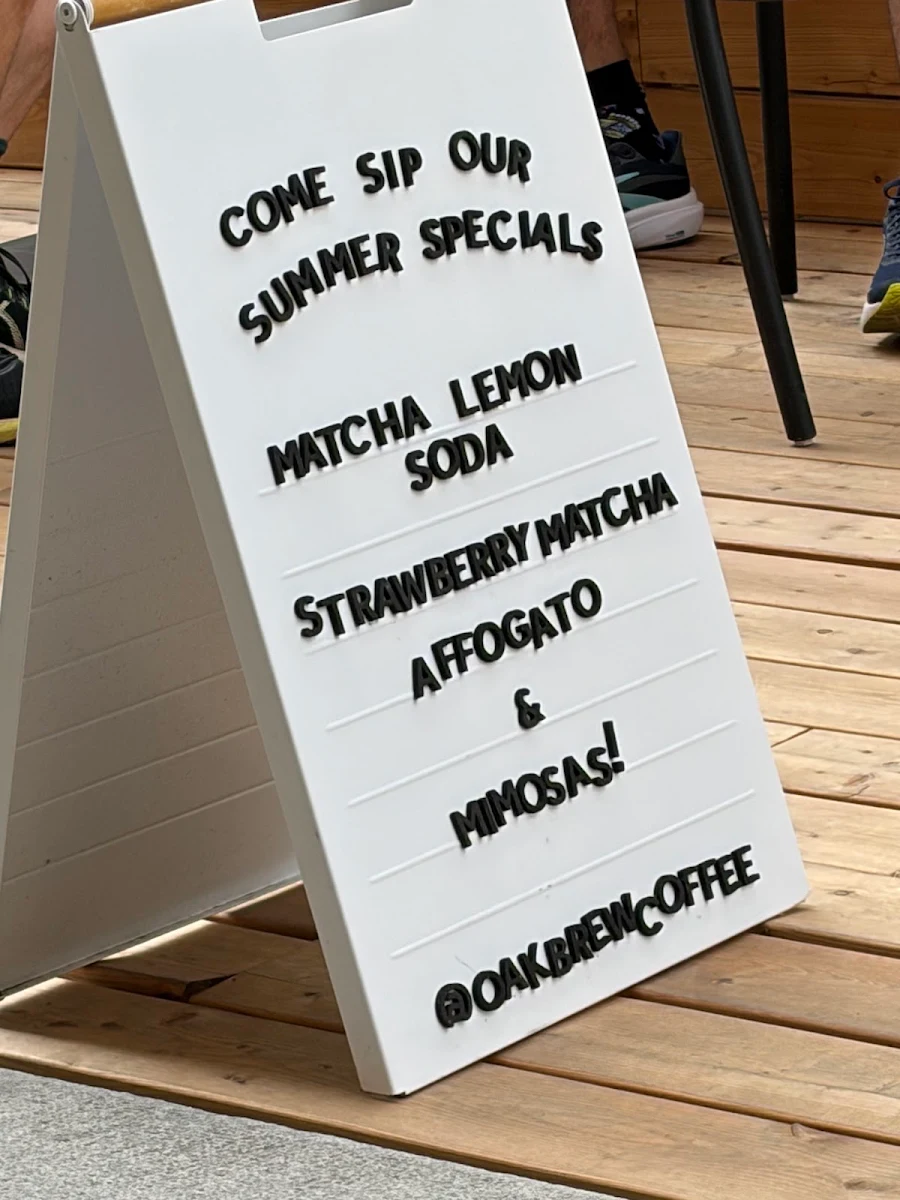 COME SIP OUR
SUMMER SPECIALS
MATCHA LEMON
SODA
STRAWBERRY MATCHA
AFFOGATO
&
MIMOSAS!
@OAKBREWCOFFEE